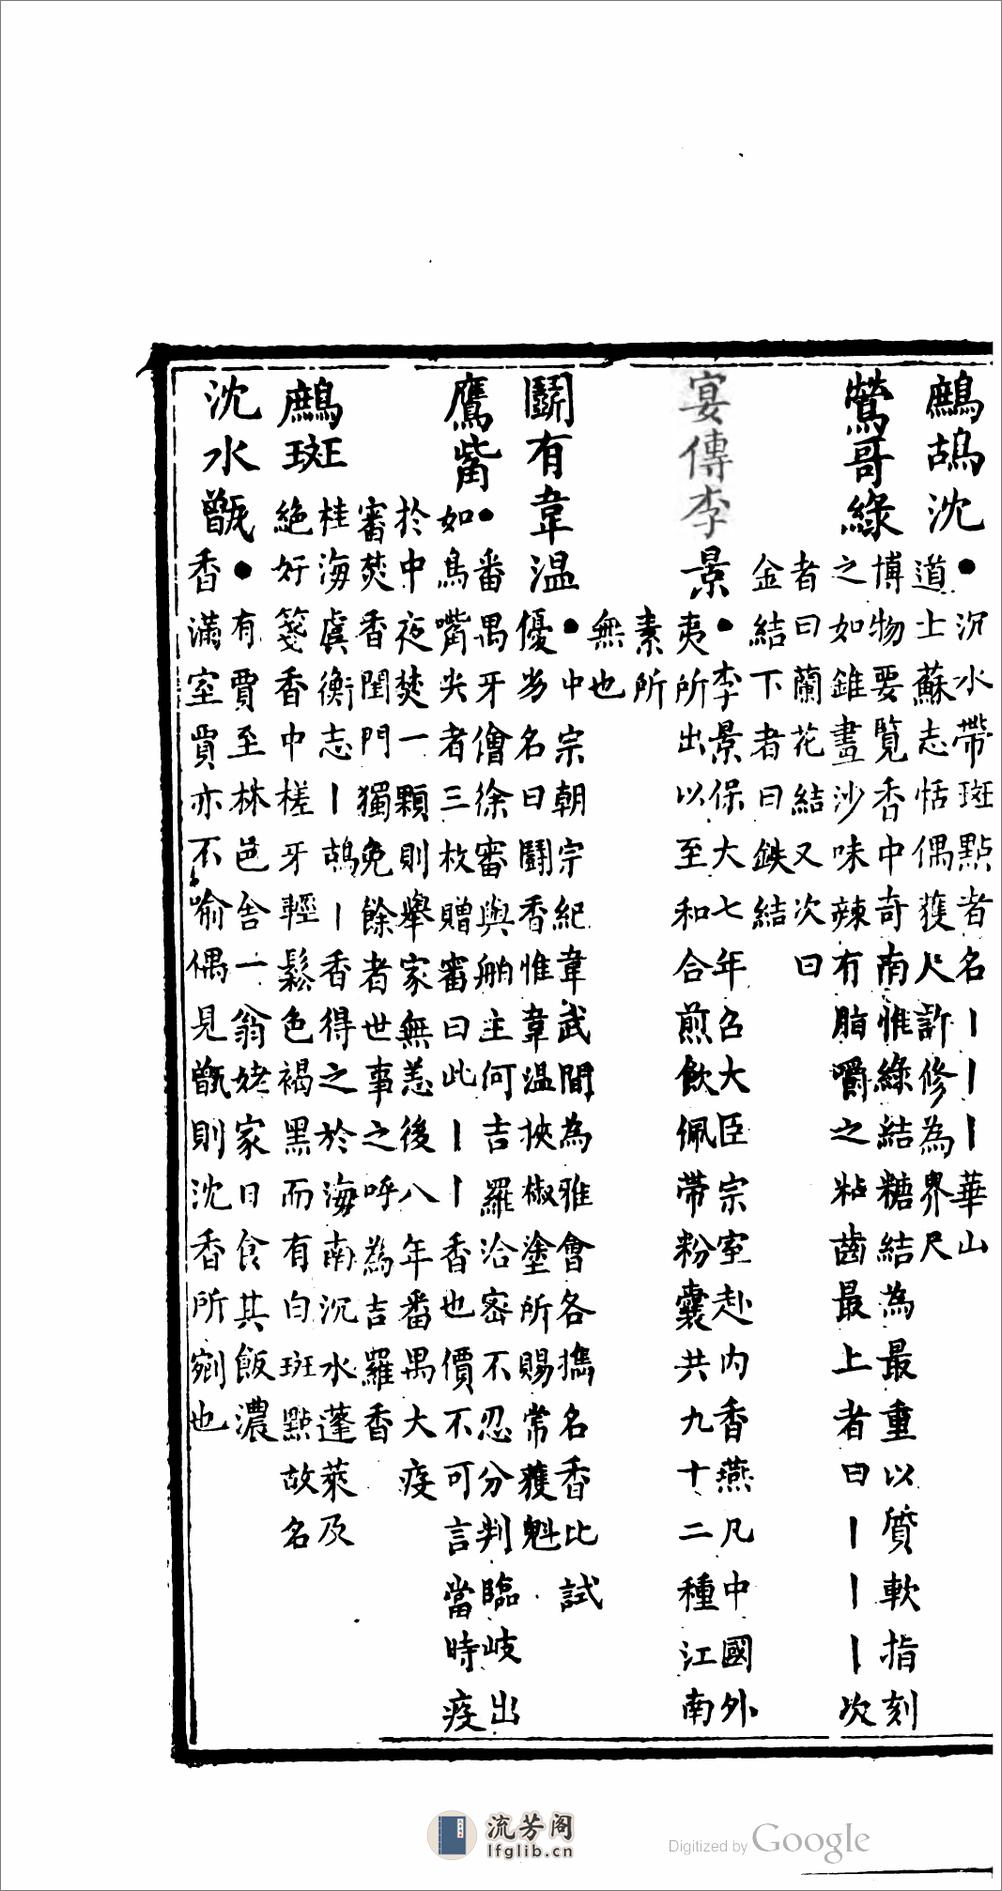 鷓鴣沈
●沉水帶斑點者名丨丨丨華山
道士蘇志恬偶獲尺許修為界尺
鶯哥綠
博物要覽香中奇南惟綠結糖結為最重以質軟指刻
之如錐畫沙味辣有脂嚼之粘齒最上者曰丨丨丨次
者曰蘭花結又次曰
金結下者曰鉄結
宴傳李景
●李景保大七年召大臣宗室赴内香燕凡中國外
夷所出以至和合煎飲佩帶粉囊共九十二種江南
素所
無也
鬭有韋温
●中宗朝宗紀韋武間為雅會各攜名香比試
優劣名曰鬭香惟韋温挾椒塗所賜常獲魁
鷹觜
●番禺牙儈徐審與舶主何吉羅洽密不忍分判臨岐出
如鳥嘴尖者三枚贈審曰此丨丨香也價不可言當時疫
於中夜焚一顆則舉家無恙後八年番禺大疫
審焚香閨門獨免餘者世事之呼為吉羅香
鷓斑
桂海虞衡志丨鴣丨香得之於海南沉水蓬萊及
絶好箋香中槎牙輕鬆色褐黑而有白斑點故名
沈水甑
●有賈至林邑舍一翁姥家日食其飯濃
香滿室賈亦不喻偶見甑則沈香所剜也
流芳阁
lfglib.cn
Digitized by Google